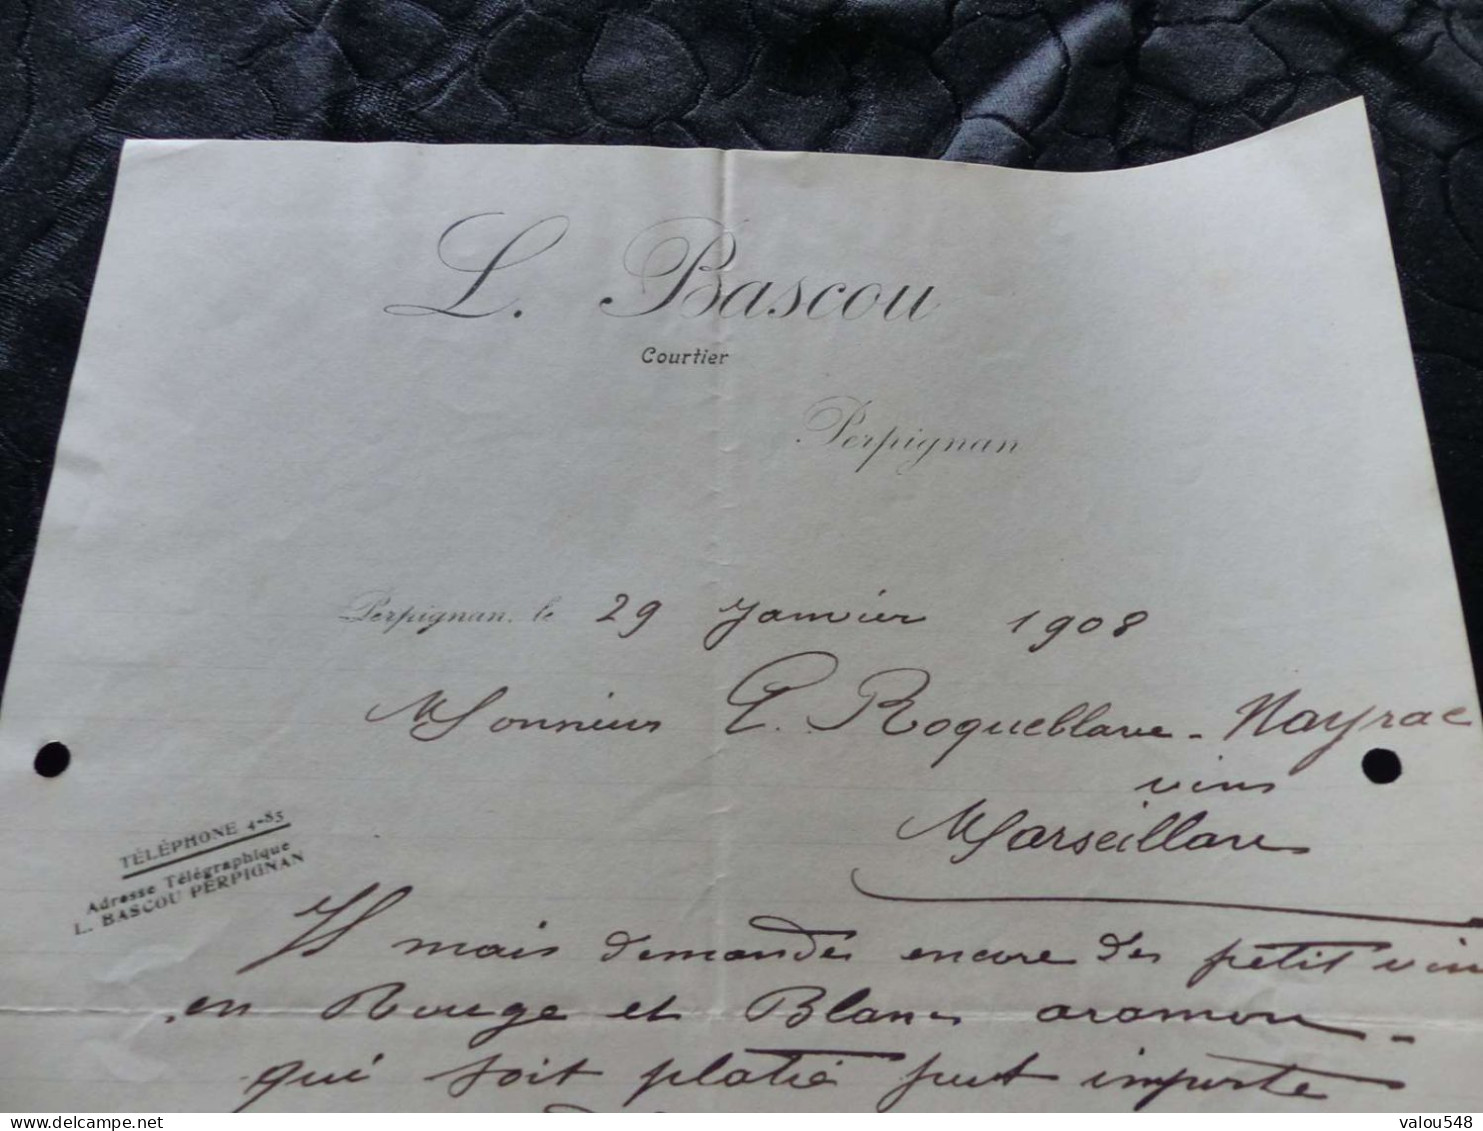 L. Bascou
Courtier
Perpignan
Perpignan, le 29 Janvier 1908
Monsieur E. Roqueblave - Nayrac
vins
Marseillan
TÉLÉPHONE 4-85
Adresse Télégraphique
L. BASCOU PERPIGNAN
Il mais demandés encore des petit vins
en Rouge et Blanc aramon -
qui soit platré peut importe
delcampe.net
valou548